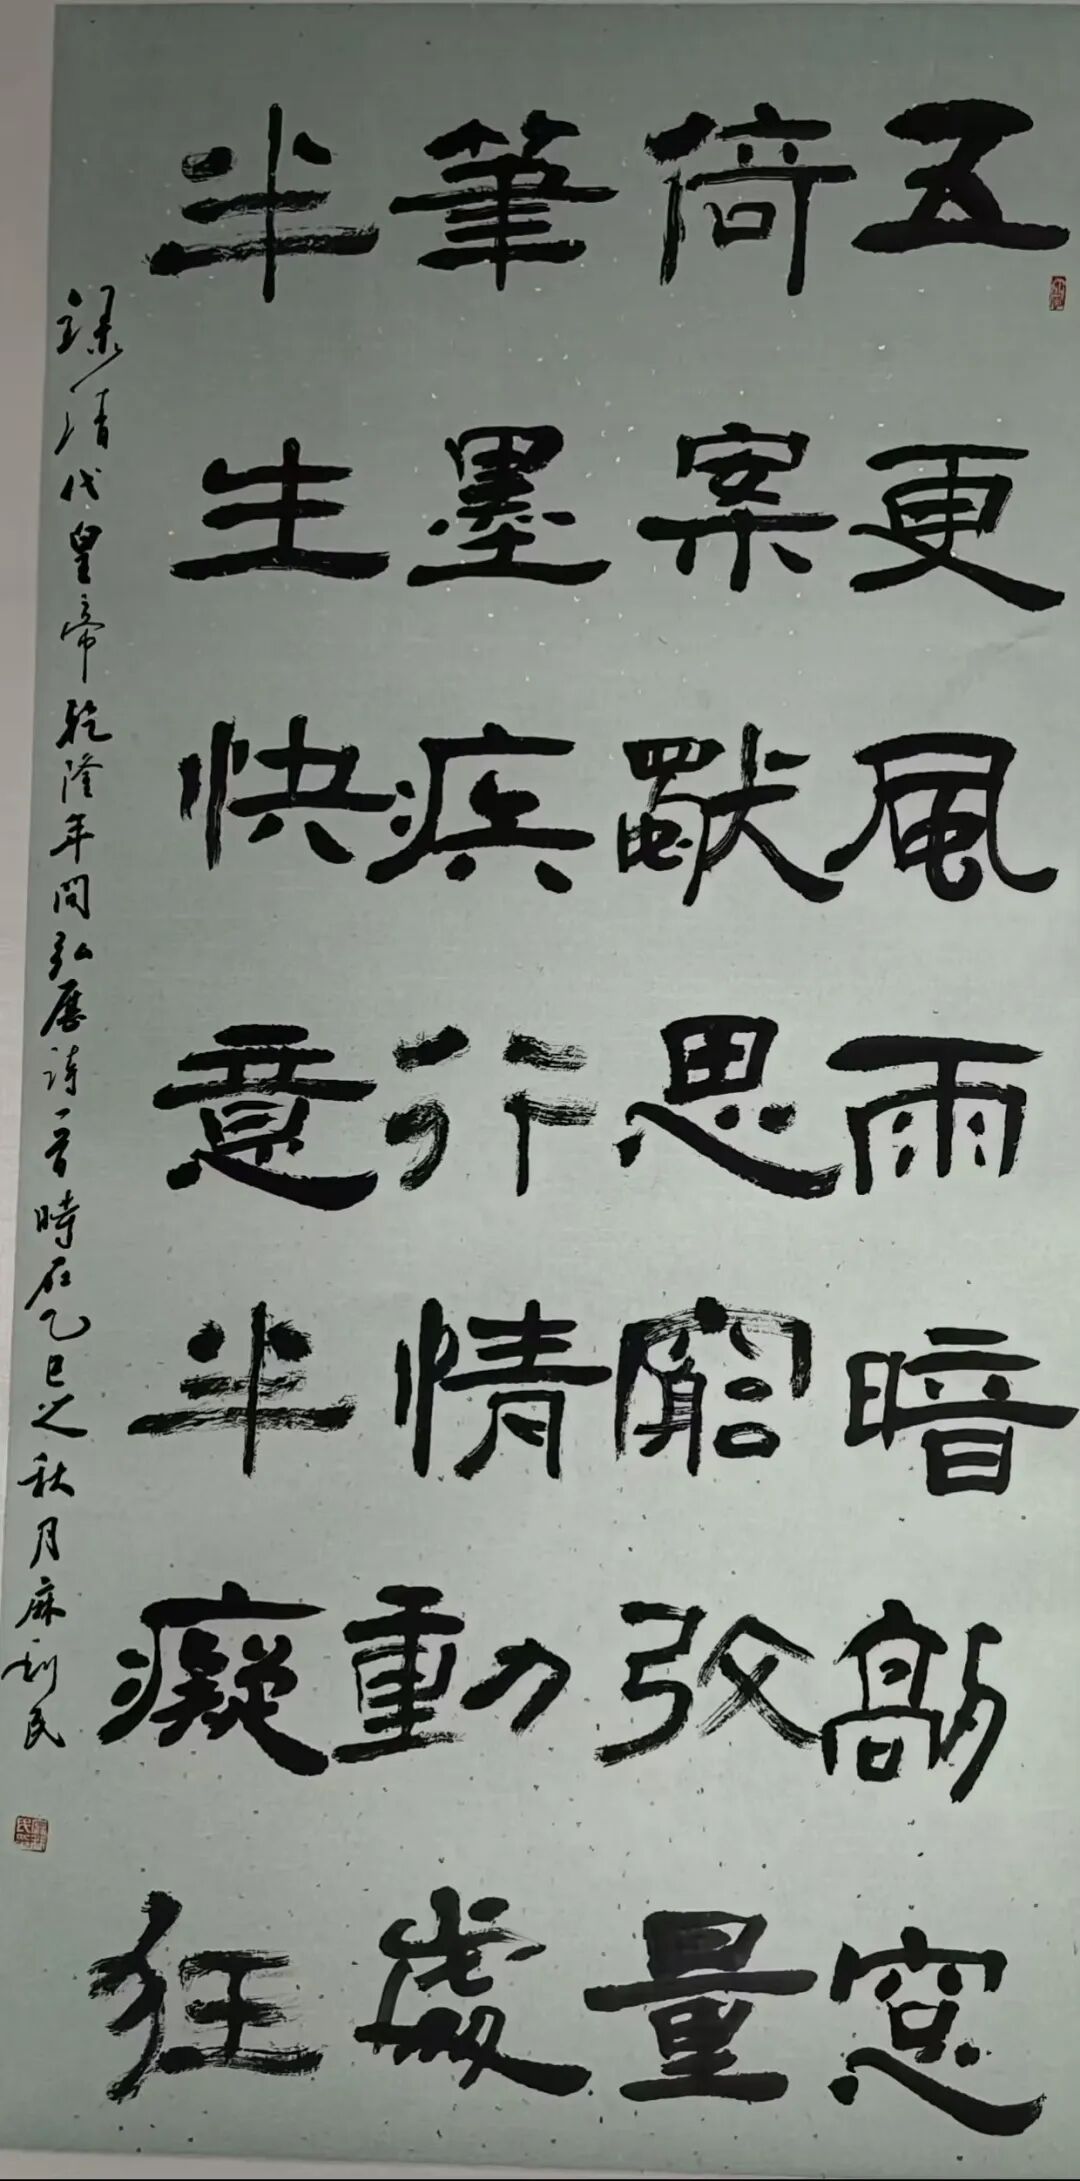 五更風雨暗敲窓
倚案默思窮攷量
筆墨疾行情動處
半生快意半癡狂
録清代皇帝乾隆年間弘曆詩一首時在乙巳之秋月麻利民